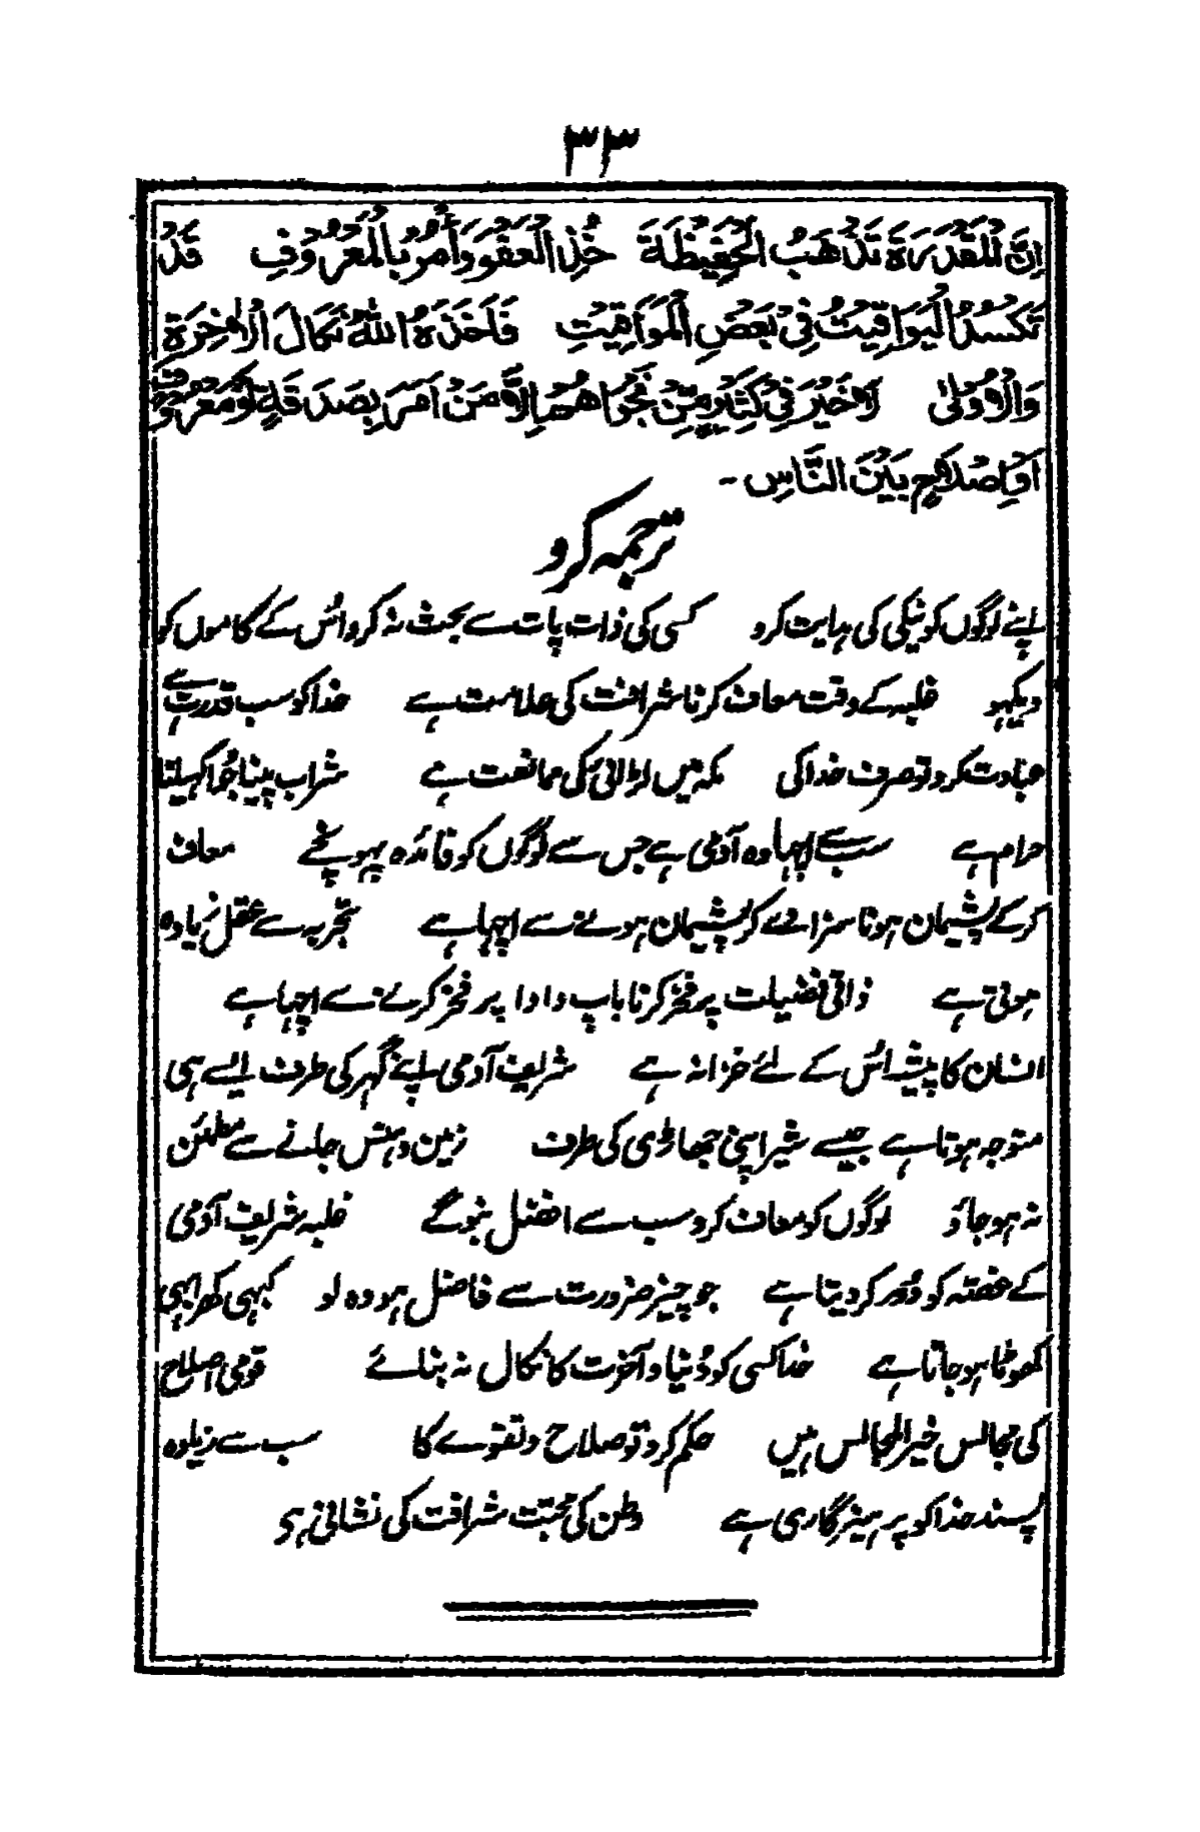 ۳۳
اِنَّ الْمَقْدَرَةَ تَذْهَبُ الْحَفِيْظَةَ خُذِ الْعَفْوَ وَأْمُرْ بِالْمَعْرُوْفِ قَدْ
تَكْسُدُ الْيَوَاقِيْتُ فِيْ بَعْضِ الْمَوَاقِيْتِ فَاَخَذَهُ اللّٰهُ نَكَالَ الْاٰخِرَةِ
وَالْاُوْلٰى لَا خَيْرَ فِيْ كَثِيْرٍ مِّنْ نَجْوَاهُمْ اِلَّا مَنْ اَمَرَ بِصَدَقَةٍ اَوْ مَعْرُوْفٍ
اَوْ اِصْلَاحٍ بَيْنَ النَّاسِ ۔
ترجمہ کرو
اپنے لوگوں کو نیکی کی ہدایت کرو کسی کی ذات پات سے بحث نہ کرو اُس کے کاموں کو
دیکہو غلبہ کے وقت معاف کرنا شرافت کی علامت ہے خدا کو سب قدرت ہے
عبادت کرو تو صرف خدا کی مکہ میں لڑائی کی ممانعت ہے شراب پینا جُوا کہیلنا
حرام ہے سب سے اچہا وہ آدمی ہے جس سے لوگوں کو فائدہ پہونچے معاف
کرکے پشیمان ہونا سزا دے کر پشیمان ہونے سے اچہا ہے تجربہ سے عقل زیادہ
ہوتی ہے ذاتی فضیلت پر فخر کرنا باپ دادا پر فخر کرنے سے اچہا ہے
انسان کا پیشہ اُس کے لئے خزانہ ہے شریف آدمی اپنے گہر کی طرف ایسے ہی
متوجہ ہوتا ہے جیسے شیر اپنی جھاڑی کی طرف زمین دہنس جانے سے مطمئن
نہ ہو جاؤ لوگوں کو معاف کرو سب سے افضل بنو گے غلبہ شریف آدمی
کے غصّہ کو دُور کر دیتا ہے جو چیز ضرورت سے فاضل ہو وہ لو کبہی کھرا بہی
کھوٹا ہو جاتا ہے خدا کسی کو دُنیا و آخرت کا نکال نہ بنائے قومی اصلاح
کی مجالس خیر المجالس ہیں حکم کرو تو صلاح و تقوے کا سب سے زیادہ
پسند خدا کو پرہیزگاری ہے وطن کی محبّت شرافت کی نشانی ہے